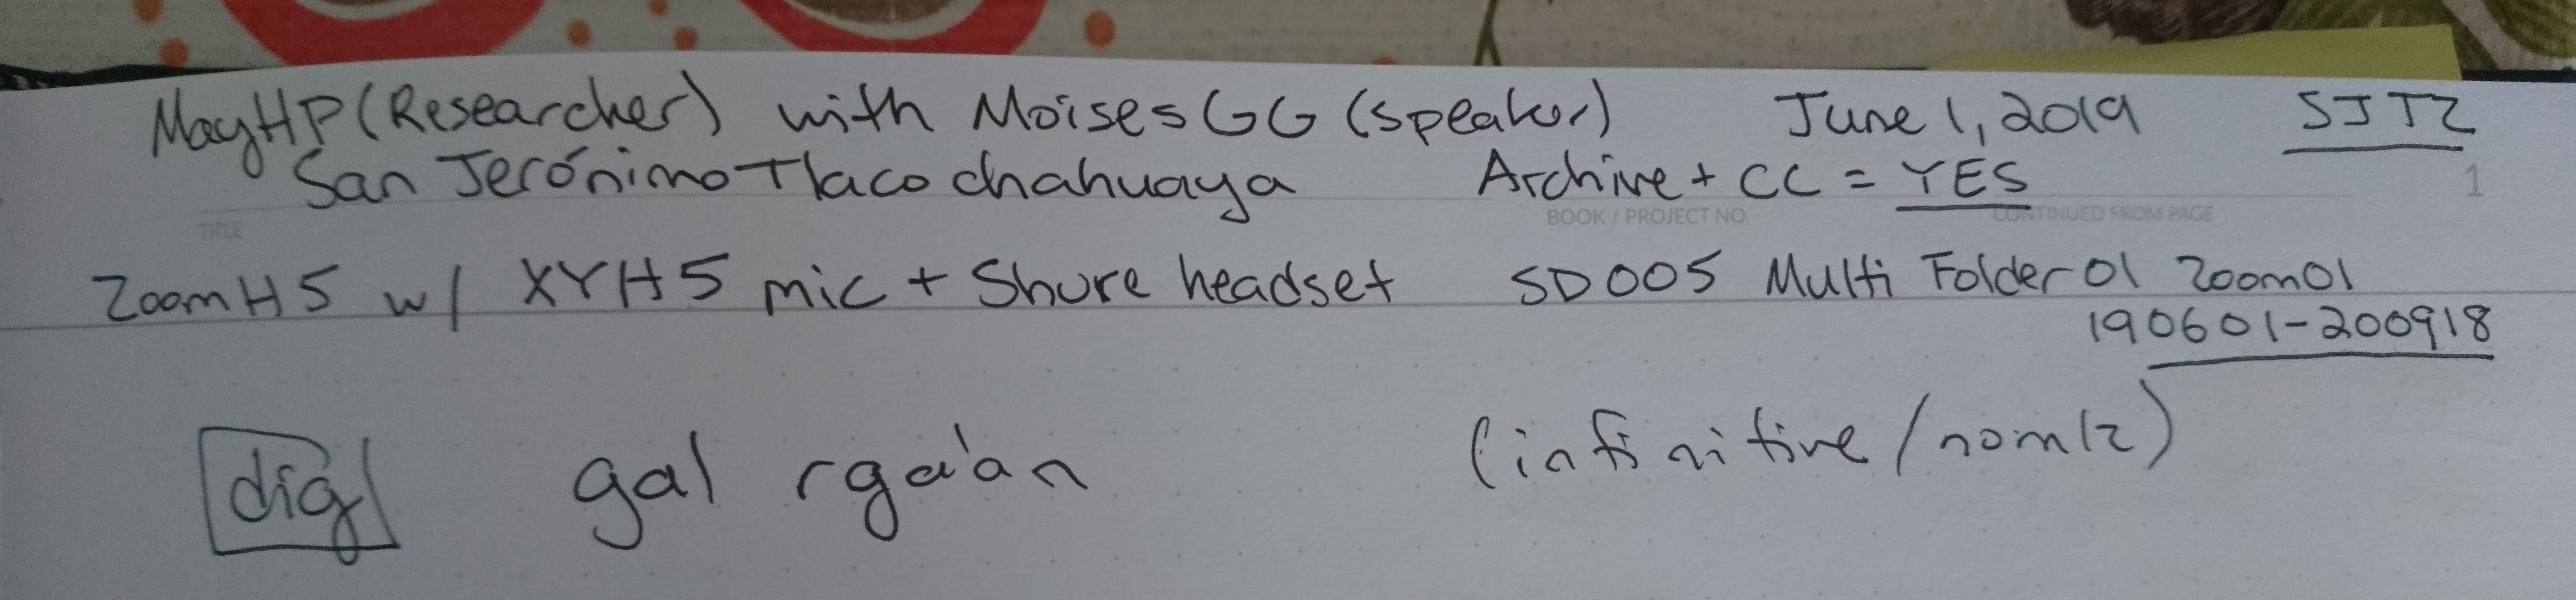 MayHP (Researcher) with Moises GG (speaker) June 1, 2019 SJTZ
San Jerónimo Tlacochahuaya Archive + CC = YES 1
TITLE BOOK / PROJECT NO. CONTINUED FROM PAGE
Zoom H5 w/ XYH5 mic + Shure headset SD005 Multi Folder 01 Zoom01
190601-200918
dig gal rga'an (infinitive/nomlz)